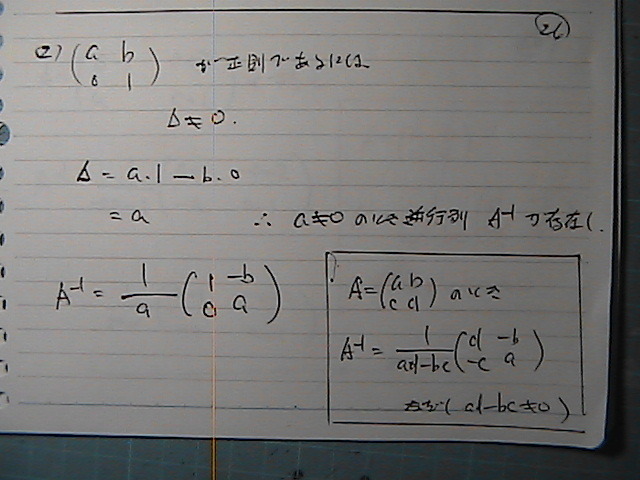 26
(2) (a b
0 1) が正則であるには
Δ≠0.
Δ = a.1 - b.0
= a ∴ a≠0 のとき逆行列 A⁻¹ が存在し.
A⁻¹ = 1/a (1 -b
0 a)
A = (a b
c d) のとき
A⁻¹ = 1/(ad-bc) (d -b
-c a)
ただし (ad-bc≠0)